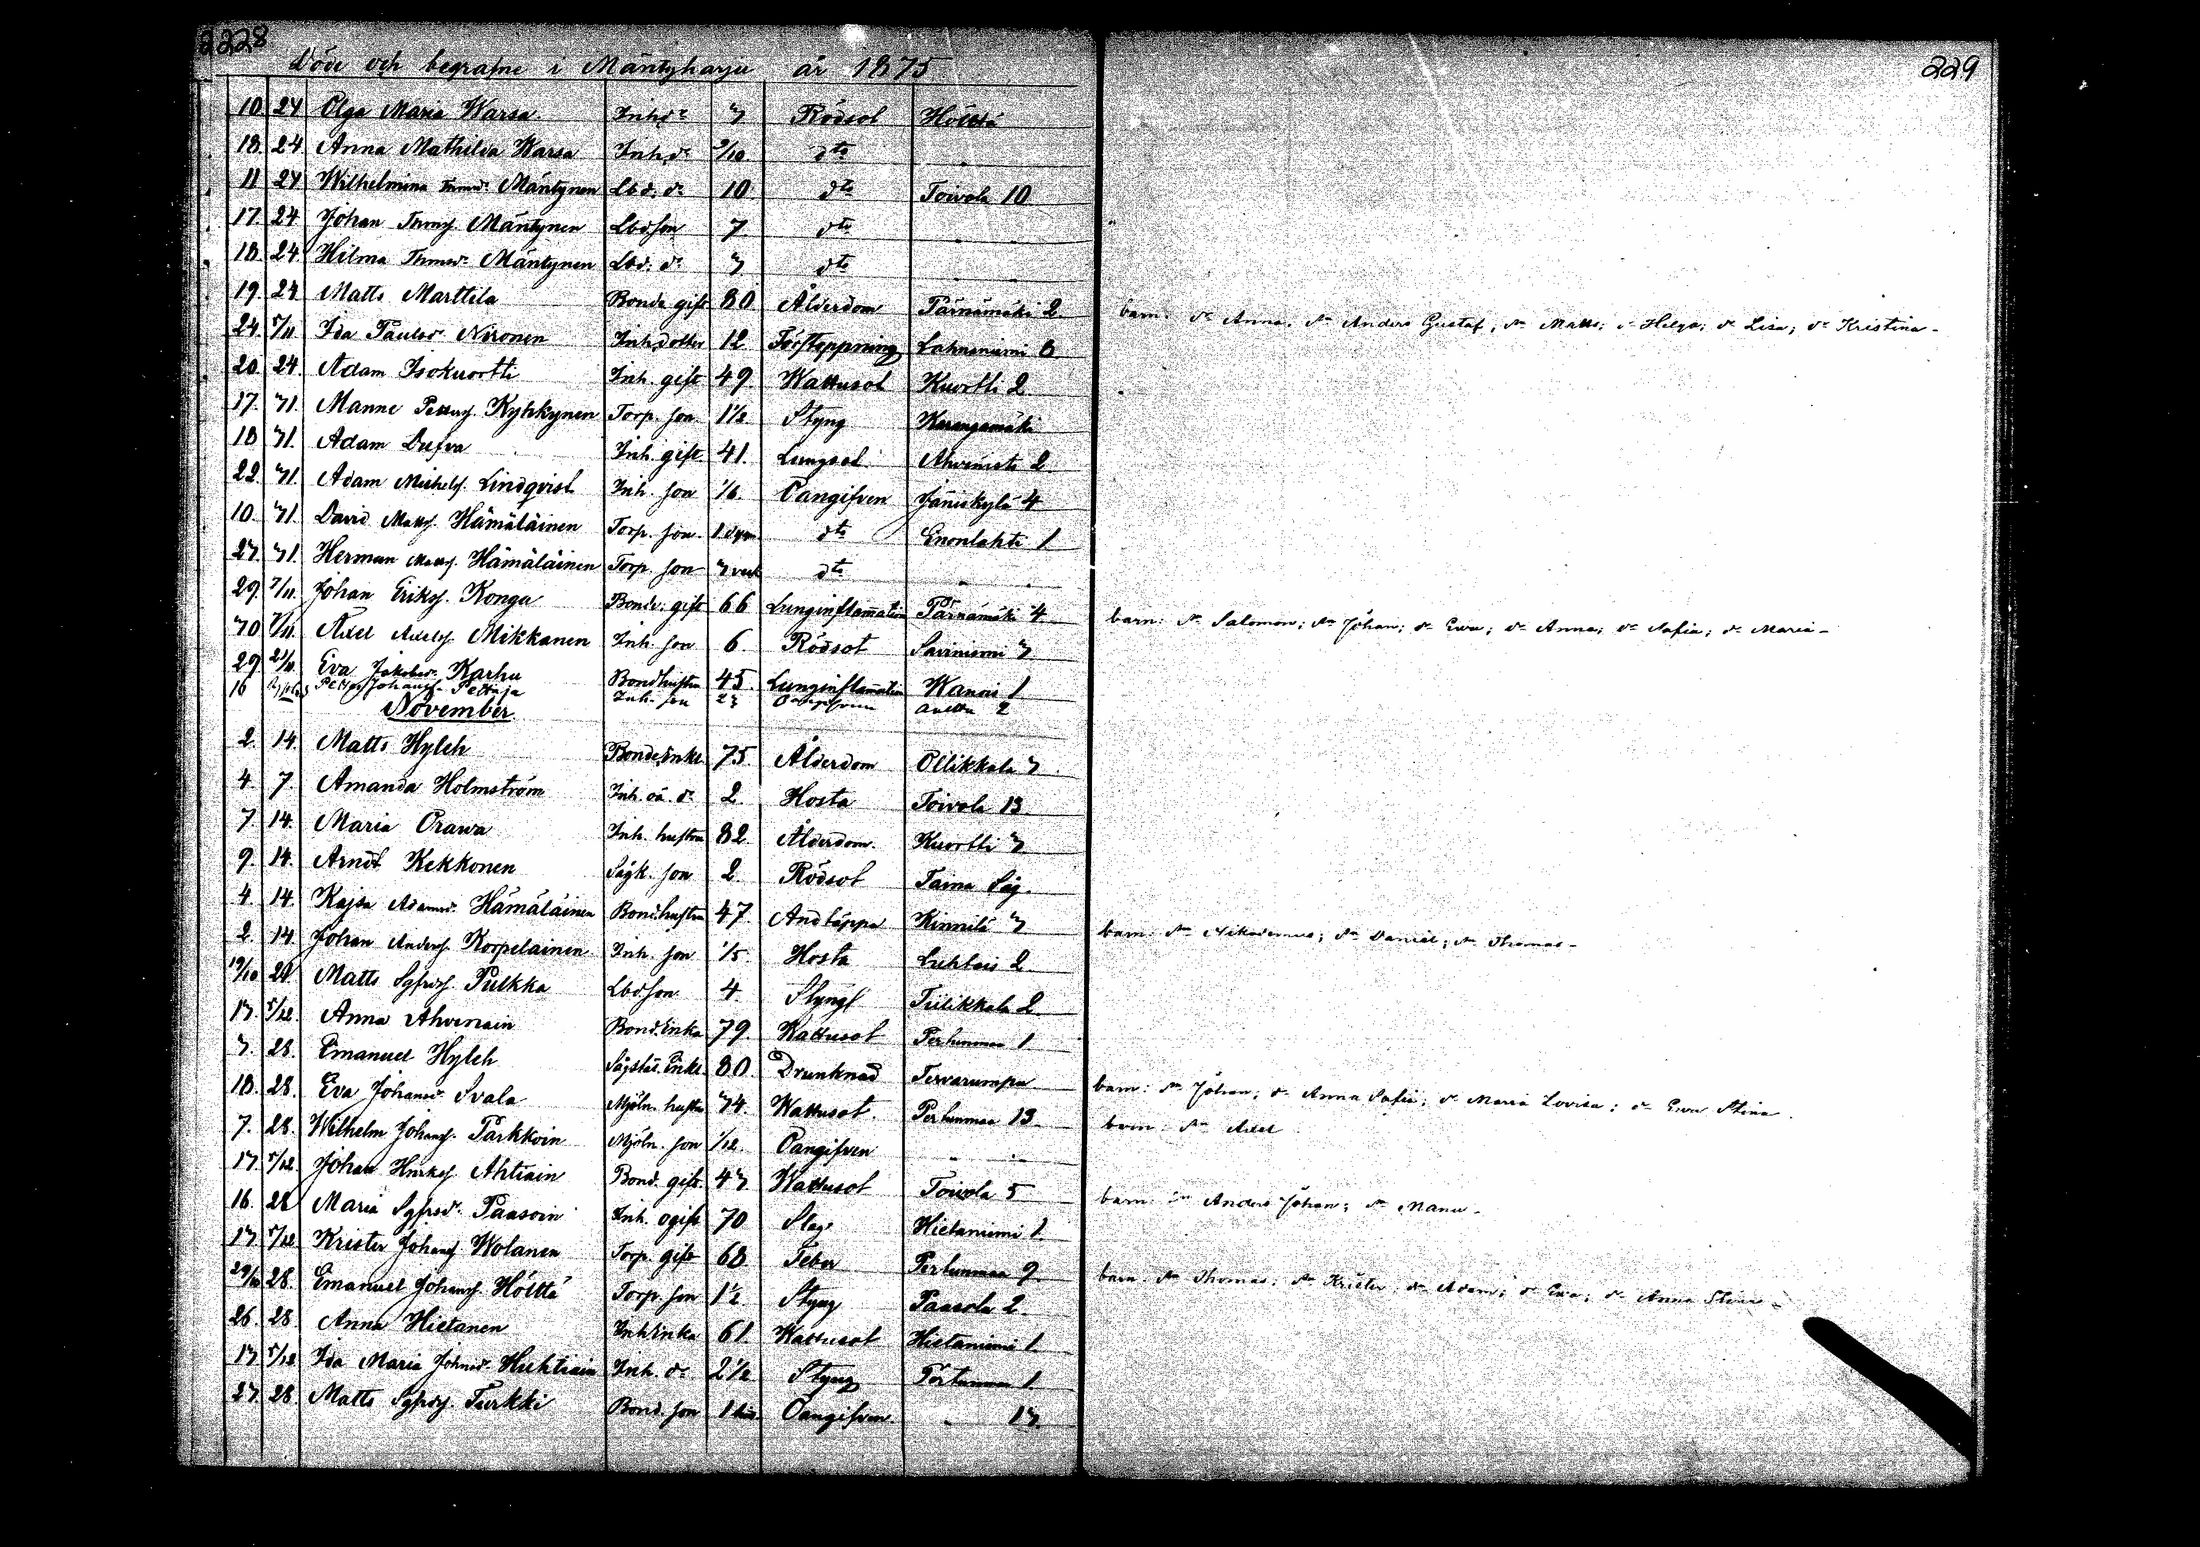 228
229
Döde och begrafne i Mäntyharju år 1875
10. 24 Olga Maria Warsa Inh. dr 3 Rödsot Hölttä
18. 24. Anna Mathilda Warsa Inh. dr 9/10 dto "
11 24 Wilhelmina Thmdr Mäntynen Lbd. dr 10 dto Toivola 10
17. 24 Johan Thmsf. Mäntynen Lbd. son 7 dto " "
18. 24. Hilma Thmsdr Mäntynen Lbd. dr 3 dto " "
19. 24 Matts Marttila Bonde gift 80 Ålderdom Pärnämäki 2. barn: dr Anna, sn Anders Gustaf; sn Matts; dr Helga; dr Lisa; dr Kristina
24. 5/11 Ida Paulsdr Nironen Inh. dotter 12 Förstoppning Lahnaniemi 8
20. 24. Adam Isokuortti Inh. gift 49 Wattusot Kuortti 2
17. 31. Manne Pettersf. Kyhkynen Torp. son 1½ Styng Karangamäki
18 31. Adam Dufva Inh. gift 41. Lungsot Ahvenisto 2
22. 31. Adam Michelsf. Lindqvist Inh. son 1/6. Oangifven Jäniskylä 4
10. 31. David Mattsf. Hämäläinen Torp. son 1 dygn dto Enonlahti 1
27. 31. Herman Mattsf. Hämäläinen Torp. son 3 veck dto " "
29. 7/11. Johan Eriksf. Konga Bonde. gift 66 Lunginflamation Pärnämäki 4 barn: sn Salomon; sn Johan; dr Ewa; dr Anna; dr Sofia; dr Maria
30 7/11. Axel Adelsf. Mikkanen Inh. son 6. Rödsot Sarviniemi 3
29 21/11. Eva Jakobsdr Karhu Bond. hustru 45. Lunginflamation Kanois 1
16 Petter Johansf. Pettäjä Inh. son 23 Oangifven 2
November
2. 14. Matts Hyleh Bonde. Enkl. 75 Ålderdom Ollikkala 3
4. 7. Amanda Holmström Inh. oä. dr 2. Hosta Toivola 13
7. 14. Maria Orawa Inh. hustru 82. Ålderdom. Kuortti 3
9. 14. Arndt Kekkonen Sågk. son 2. Rödsot Taina Såg.
4. 14. Kajsa Adamsdr Hämäläinen Bond. hustru 47. Andtäppa Kinnilä 3 barn: sn Nikodemus; sn Daniel; sn Thomas
2. 14. Johan Andersf. Korpelainen Inh. son 1/5. Hosta Luhtois 2
19/10 28 Matts Sgfrdsf. Pulkka Lbd. son 4 Styng Tiilikkala 2
13. 5/12. Anna Ahvenain Bond. Enka 79 Wattusot Pertunmaa 1
3. 28. Emanuel Hyleh Enkl. 80. Drunknad Tervarumpu barn: sn Johan; dr Anna Sofia; dr Maria Lovisa; dr Ewa Stina
18. 28. Eva Johansdr Svala Mjöln. hustru 34. Wattusot. Pertunmaa 13 barn: sn Axel
7. 28. Wilhelm Johansf. Parkkoin Mjöln. son 1/12 Oangifven " "
13. 5/12. Johan Hnrksf. Ahtiain Bond. gift. 43 Wattusot Toivola 5 barn: sn Anders Johan; sn Manu
16. 28 Maria Sgfrsdr Paasoin Inh. ogift 70 Slag Hietaniemi 1
13 5/12 Krister Johansf. Wolanen Torp. gift 68. Feber Pertunmaa 9. barn: sn Thomas; sn Krister; sn Adam; dr Ewa; dr Anna Stina
29/10 28. Emanuel Johansf. Hölttä Torp. son 1½ Styng Paasola 2
26. 28. Anna Hietanen Inh. Enka 61. Wattusot Hietaniemi 1
13 5/12 Ida Maria Johansdr Huhtiain Inh. dr 2½ Styng Pertunmaa 1
27. 28 Matts Sgfrdsf. Turkki Bond. son 1 Oangifven " 13